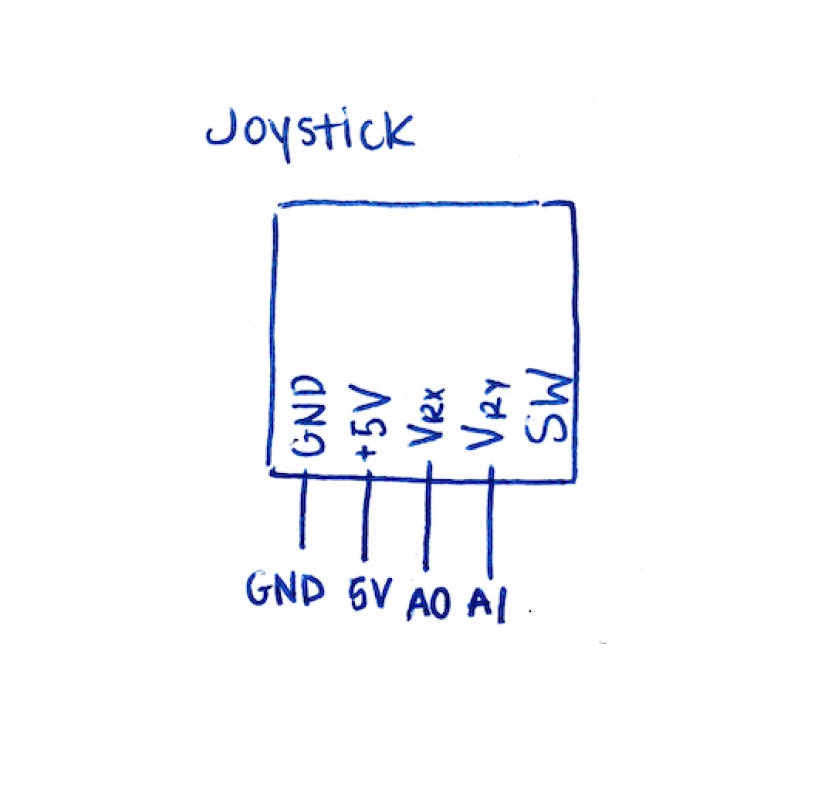 Joystick
GND +5V VRX VRY SW
GND 5V A0 A1